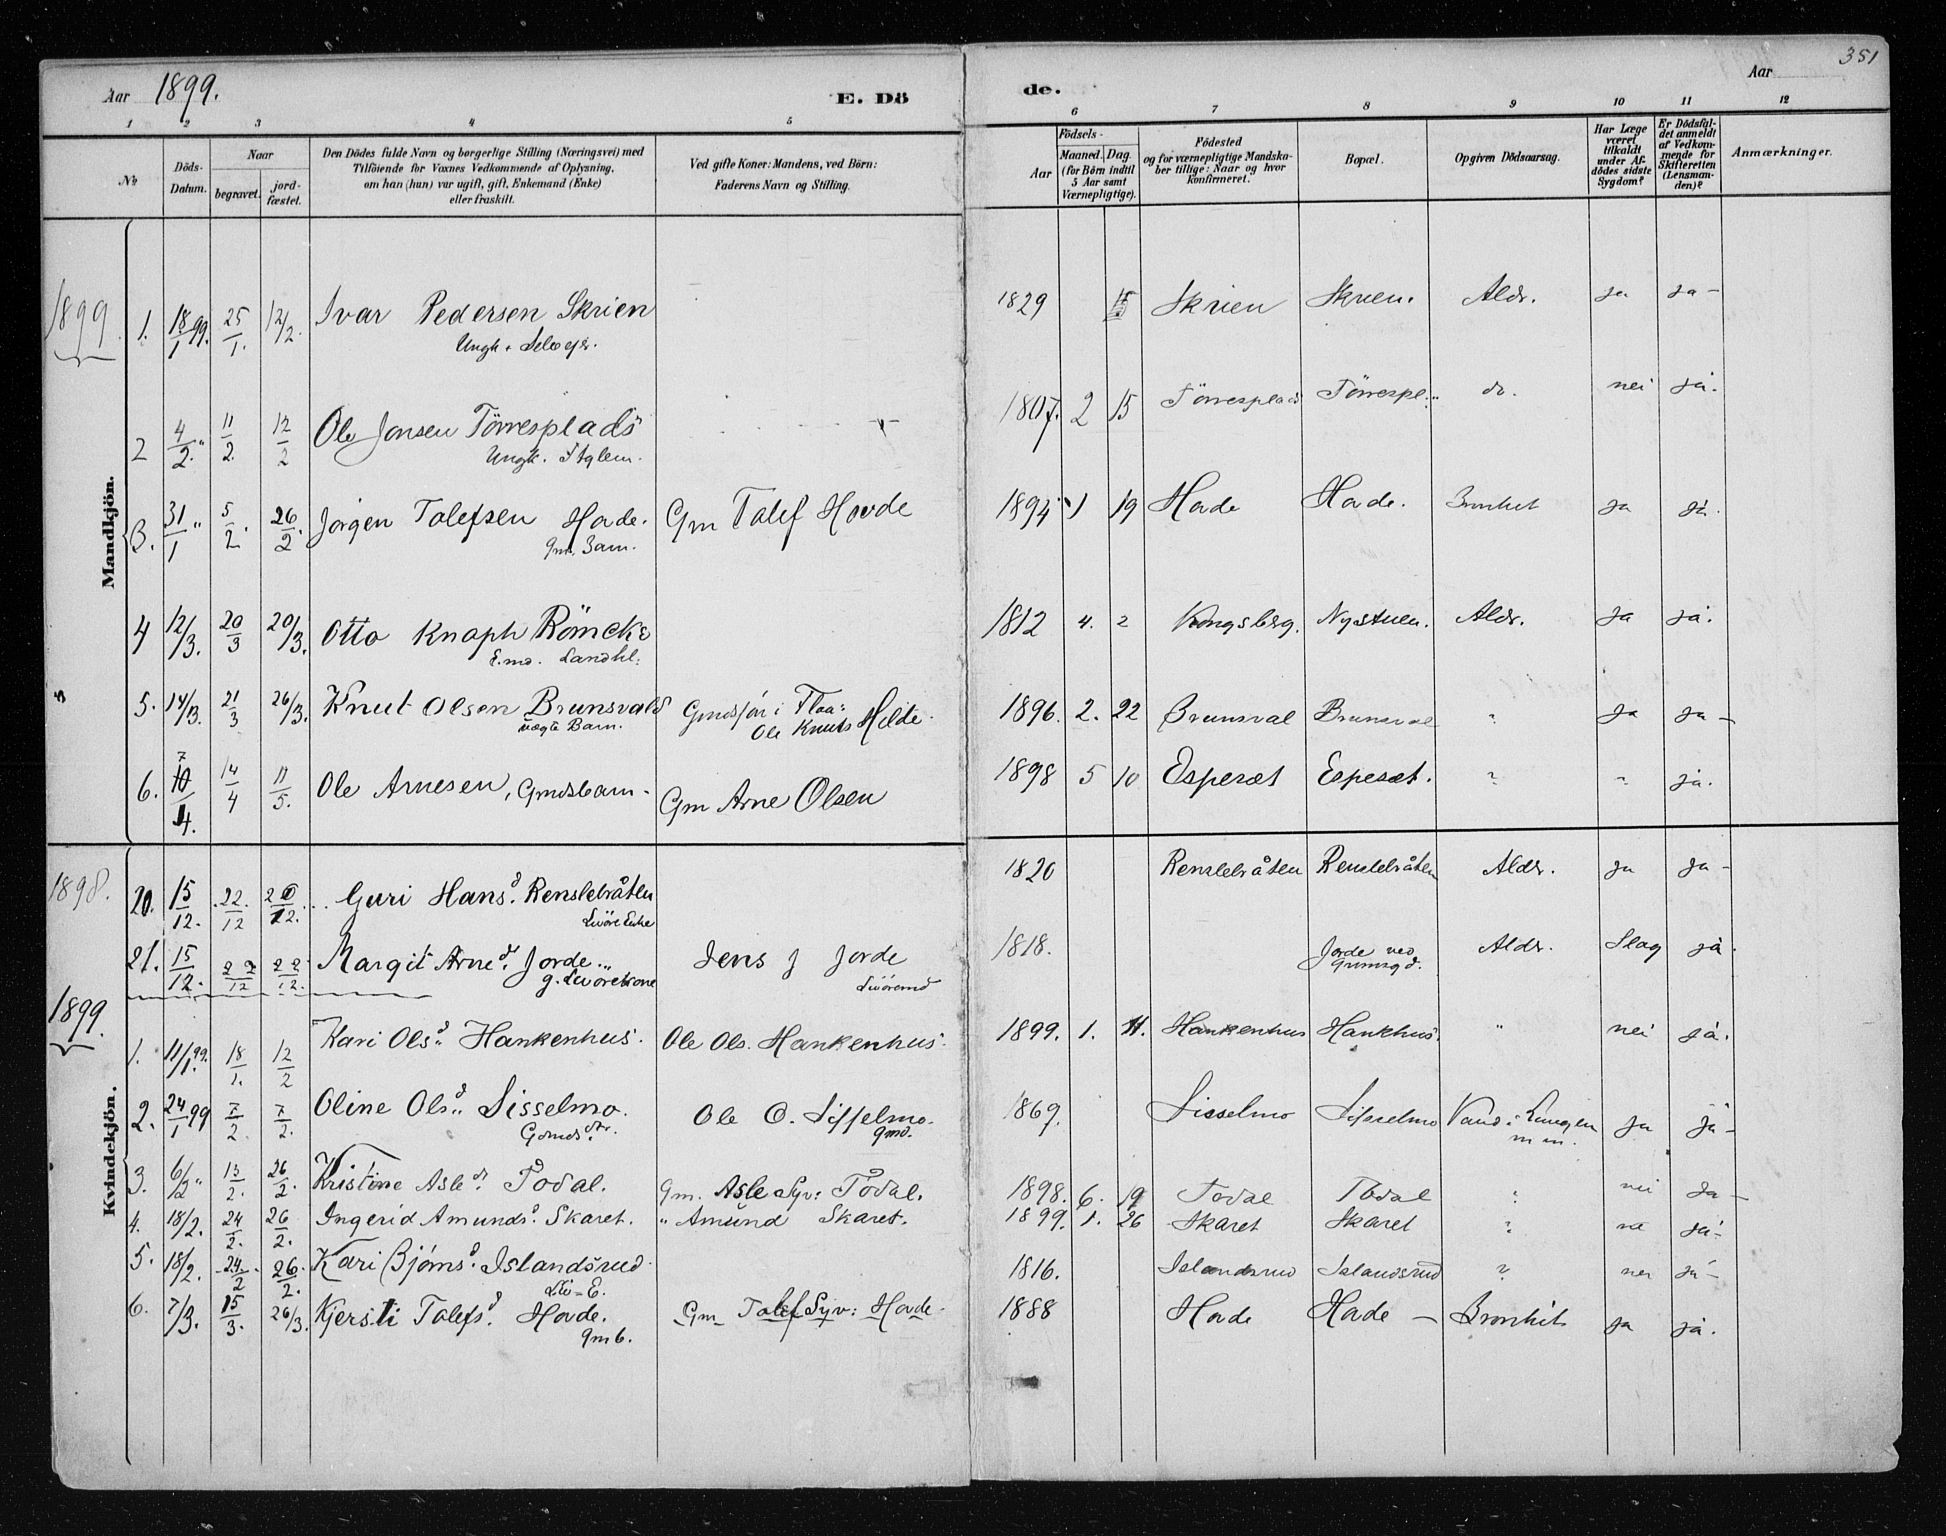 351
Aar 1899. E. Dö de. Aar
1 2 3 4 5 6 7 8 9 10 11 12
No
Döds-Datum.
Naar
begravet.
jord-fæstet.
Den Dödes fulde Navn og borgerlige Stilling (Næringsvei) med
Tilföiende for Voxnes Vedkommende af Oplysning,
om han (hun) var ugift, gift, Enkemand (Enke)
eller fraskilt.
Ved gifte Koner: Mandens, ved Börn:
Faderens Navn og Stilling.
Födsels-
Aar
Maaned. Dag.
(for Börn indtil
5 Aar samt
Værnepligtige).
Födested
og for værnepligtige Mandska-
ber tillige: Naar og hvor
konfirmeret.
Bopæl.
Opgiven Dödsaarsag.
Har Læge
været
tilkaldt
under Af-
dödes sidste
Sygdom?
Er Dödsfal-
det anmeldt
af Vedkom-
mende for
Skifteretten
(Lensman-
den)?
Anmærkninger.
Mandkjön.
1899
1. 18/1 99. 25/1. 12/2. Ivar Pedersen Skrien 1829 15 Skrien Skrien. Aldr. ja ja -
Ungk.
2 4/2 " 11/2. 12/2 Ole Jonsen Törresplads 1807. 2 15 Törresplads Törrespl. do. nei ja.
Ungk.
3. 31/1 " 5/2. 26/2. Jörgen Tolefsen Hovde. Gm Tolef Hovde 1894 1 19 Hovde Hovde. Bronkit ja ja.
Gm. Barn.
4 12/3. 20/3 20/3. Otto Knoph Römcke 1812 4. 2 Kongsberg. Nystuen. Aldr. ja ja.
E.md. Landhl.
5. 14/3. 21/3 26/3. Knut Olsen Brunsvald Gmdsfor i Flaa: 1896. 2. 22 Brunsval Brunsval ? ja ja -
uægte Barn. Ole Knuts Hilde.
6. 7/4. 14/4 11/5. Ole Arnesen, Gmdsbarn - Gm Arne Olsen 1898 5 10 Espeset Espeset. ? " ja.
Kvindekjön.
1898.
20. 15/12. 22/12 12. Guri Hansd. Renslebråten 1820 Renslebråten Renslebråten Aldr. ja ja -
Livöre Enke
21. 15/12. 22/12 22/12. Margit Arned. Jorde Jens J Jorde 1818. Jorde ved Aldr. Slag ja.
g. Livörekone Livöremd Grimsgd.
1899.
1. 11/1 99. 18/1. 12/2 Kari Olsd. Hankenhus. Ole Ols. Hankenhus. 1899. 1. 11. Hankenhus Hankhus. " nei ja.
2. 24/1 99 7/2 7/2. Oline Olsd. Sisselmo. Ole O. Sisselmo. 1869. Sisselmo Sisselmo Vand i Lungen ja ja -
Gmds dtr. Gmd. m m.
3. 6/2 " 15/2. 26/2. Kristine Asled. Todal. Gm. Asle Syv: Todal. 1898. 6. 19 Todal Todal ? nei ja -
4. 18/2. 24/2. 26/2. Ingerid Amundsd. Skaret. " Amund Skaret. 1899. 1. 26 Skaret Skaret ? nei ja -
5. 18/2. 24/2. 26/2. Kari Björnsd. Islandsrud 1816. Islandsrud Islandsrud ? nei ja -
E.
6. 7/3. 15/3. 26/3. Kjersti Tolefsd. Hovde. Gm Tolef Syv: Hovde. 1888 Hovde Hovde - Bronkit ja ja.
Gm b.